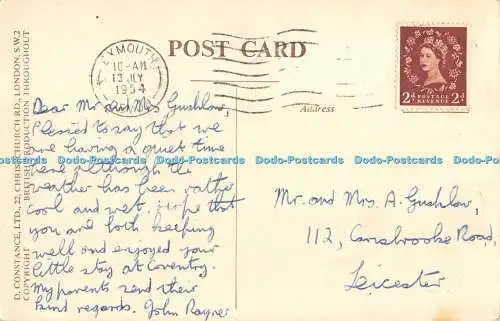 POST CARD
PLYMOUTH
10-AM
13 JLY
1954
DEVON
POSTAGE
REVENUE
2d 2d
Address
D. CONSTANCE, LTD., 22, CHRISTCHURCH RD., LONDON, S.W.2
COPYRIGHT BRITISH PRODUCTION THROUGHOUT
Dear Mr and Mrs Gushlow,
Pleased to say that we
are having a quiet time
here although the
weather has been rather
cool and wet. Hope that
you are both keeping
well and enjoyed your
little stay at Coventry.
My parents send their
kind regards. John Rayner
Mr. and Mrs. A. Gushlow,
112, Carisbrooke Road,
Leicester
Dodo-Postcards Dodo-Postcards Dodo-Postcards Dodo-Postcards Dodo-Postcards